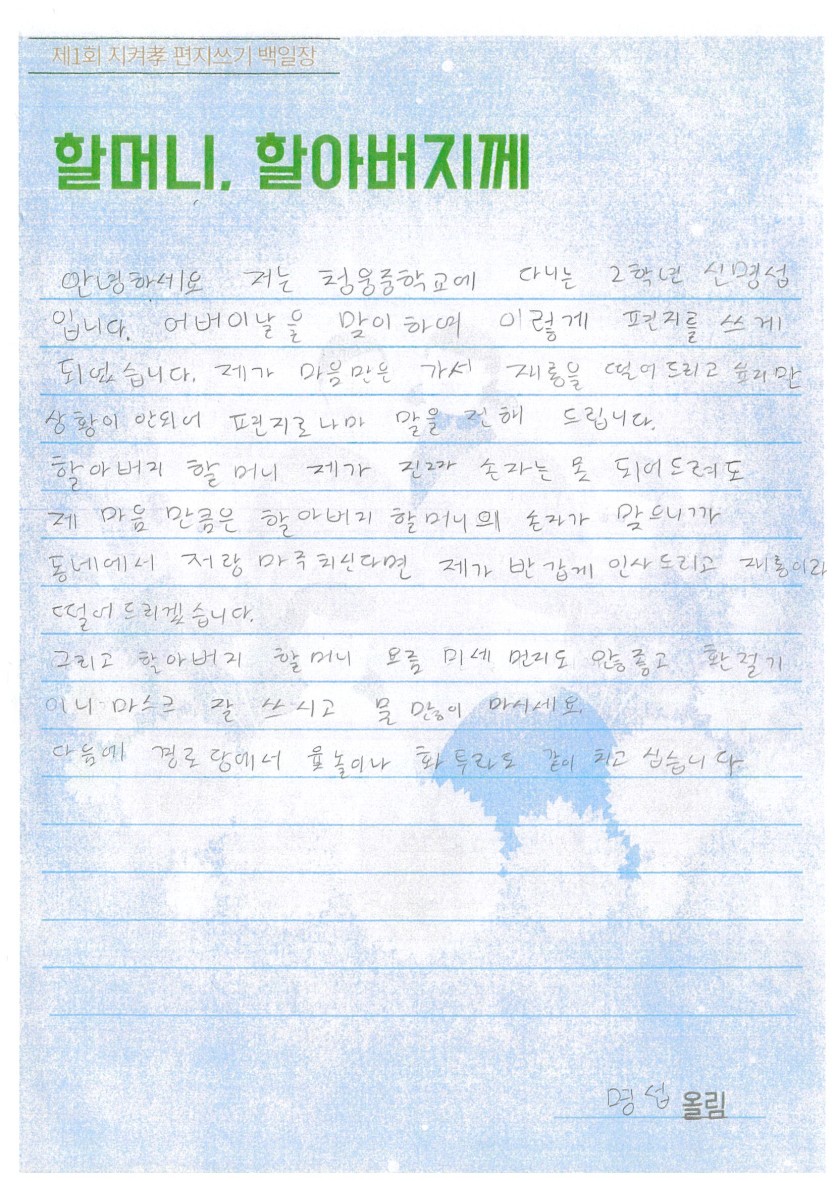 제1회 지켜孝 편지쓰기 백일장
할머니, 할아버지께
안녕하세요 저는 청웅중학교에 다니는 2학년 신명섭
입니다. 어버이날을 맞이하며 이렇게 편지를 쓰게
되었습니다. 제가 마음만은 가서 재롱을 떨어드리고 싶지만
상황이 안되어 편지로나마 말을 전해 드립니다.
할아버지 할머니 제가 진짜 손자는 못 되어드려도
제 마음 만큼은 할아버지 할머니의 손자가 맞으니까
동네에서 저랑 마주치신다면 제가 반갑게 인사드리고 재롱이라
떨어드리겠습니다.
그리고 할아버지 할머니 요즘 미세 먼지도 안좋고 환절기
이니 마스크 잘 쓰시고 물 많이 마시세요.
다음에 경로당에서 윷놀이나 화투라도 같이 치고 싶습니다
명섭 올림